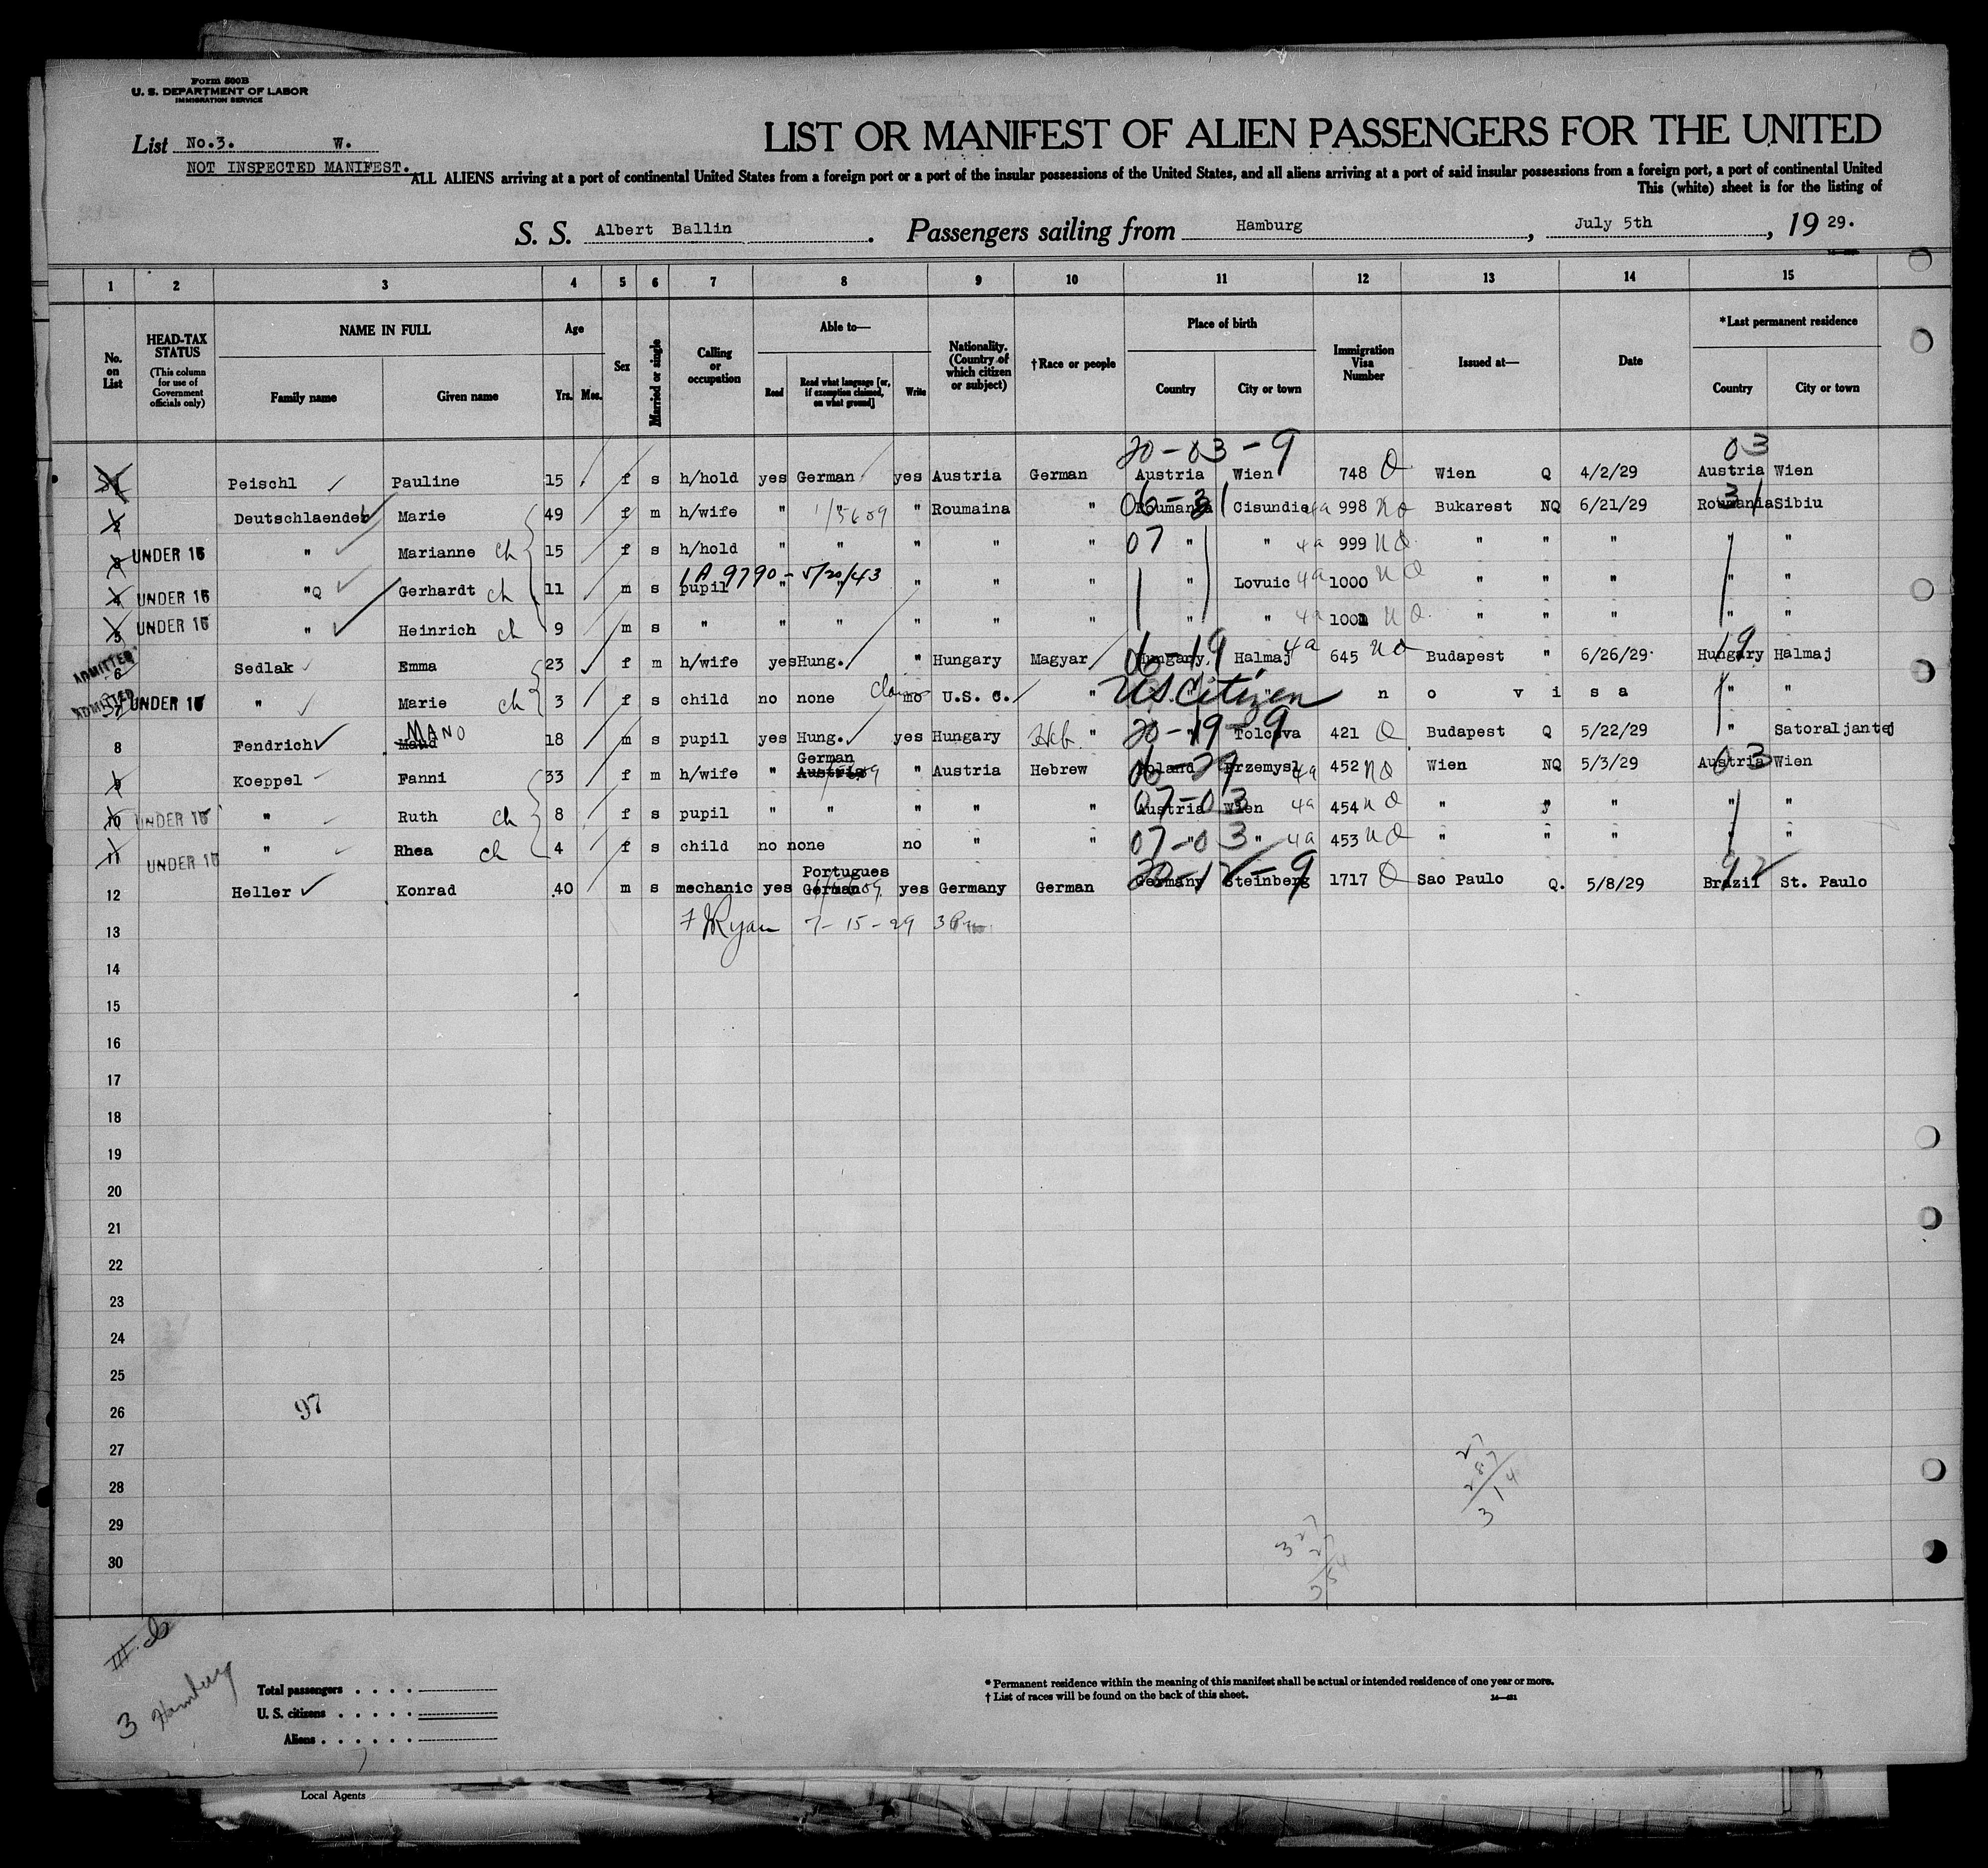 Form 500B
U. S. DEPARTMENT OF LABOR
IMMIGRATION SERVICE
List No.3. W.
NOT INSPECTED MANIFEST.
LIST OR MANIFEST OF ALIEN PASSENGERS FOR THE UNITED
ALL ALIENS arriving at a port of continental United States from a foreign port or a port of the insular possessions of the United States, and all aliens arriving at a port of said insular possessions from a foreign port, a port of continental United
This (white) sheet is for the listing of
S. S. Albert Ballin . Passengers sailing from Hamburg , July 5th , 19 29.
1 2 3 4 5 6 7 8 9 10 11 12 13 14 15
No. on List HEAD-TAX STATUS (This column for use of Government officials only) NAME IN FULL Family name Given name Age Yrs. Mos. Sex Married or single Calling or occupation Able to— Read Read what language [or, if exemption claimed, on what ground] Write Nationality. (Country of which citizen or subject) †Race or people Place of birth Country City or town Immigration Visa Number Issued at— Date *Last permanent residence Country City or town
20-03-9 03
Peischl Pauline 15 f s h/hold yes German yes Austria German Austria Wien 748 Q Wien Q 4/2/29 Austria Wien
2 Deutschlaender Marie 49 f m h/wife " " " Roumaina " 06-31 Roumania Cisundie 4a 998 NQ Bukarest NQ 6/21/29 31 Roumania Sibiu
3 UNDER 16 " Marianne ch 15 f s h/hold " " " " " 07 " " 4a 999 NQ " " " " "
1A 9790 - 5/20/43
4 UNDER 16 "Q Gerhardt ch 11 m s pupil " " " " " " Lovuic 4a 1000 NQ " " " " "
5 UNDER 16 " Heinrich ch 9 m s " " " " " " " " 4a NQ " " " " "
ADMITTED 6 Sedlak Emma 23 f m h/wife yes Hung. " Hungary Magyar 06-19 Hungary Halmaj 4a 645 NQ Budapest " 6/26/29 19 Hungary Halmaj
ADMITTED UNDER 16 " Marie ch 3 f s child no none no U.S. C. " U.S. Citizen n o v i s a " "
MANO
8 Fendrich Maud 18 m s pupil yes Hung. yes Hungary Heb. " 20-19-9 " Tolcsva 421 Q Budapest Q 5/22/29 " Satoraljantej
German
9 Koeppel Fanni 33 f m h/wife " Austria " Austria Hebrew Poland Przemysl 4a 452 NQ Wien NQ 5/3/29 03 Austria Wien
10 UNDER 16 " Ruth ch 8 f s pupil " " " " " 07-03 Austria Wien 4a 454 NQ " " " " "
11 UNDER 16 " Rhea ch 4 f s child no none no " " 07-03 " " 4a 453 NQ " " " " "
Portugues
12 Heller Konrad 40 m s mechanic yes German yes Germany German Germany Steinberg 1717 Q Sao Paulo Q. 5/8/29 92 Brazil St. Paulo
13 Ryan 7-15-29
14
15
16
17
18
19
20
21
22
23
24
25
26 97
27
28
29
30
27
287
314
327
27
354
3 Hamburg
Total passengers
U. S. citizens
Aliens
* Permanent residence within the meaning of this manifest shall be actual or intended residence of one year or more.
† List of races will be found on the back of this sheet.
Local Agents